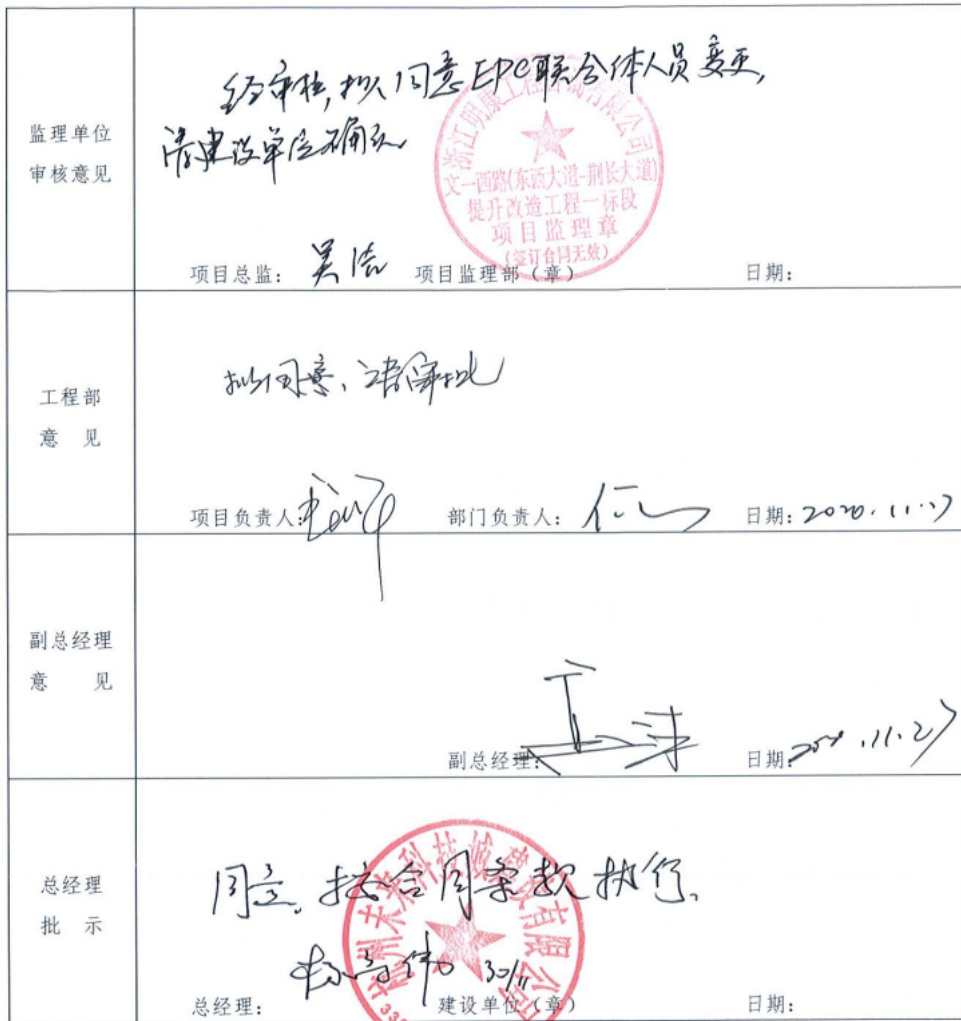 监理单位
审核意见
经审核,拟同意EPC联合体人员变更,
请建设单位确认.
浙江明康工程咨询有限公司
文一西路(东西大道-荆长大道)
提升改造工程一标段
项目监理章
(签订合同无效)
项目总监: 吴浩 项目监理部(章) 日期:
工程部
意 见
拟同意、请审批
项目负责人: 部门负责人: 日期: 2020.11.27
副总经理
意 见
副总经理: 日期: 11.27
总经理
批 示
同意, 按合同条款执行.
杭州未来科技城建设有限公司
30/11
总经理: 建设单位(章) 日期: